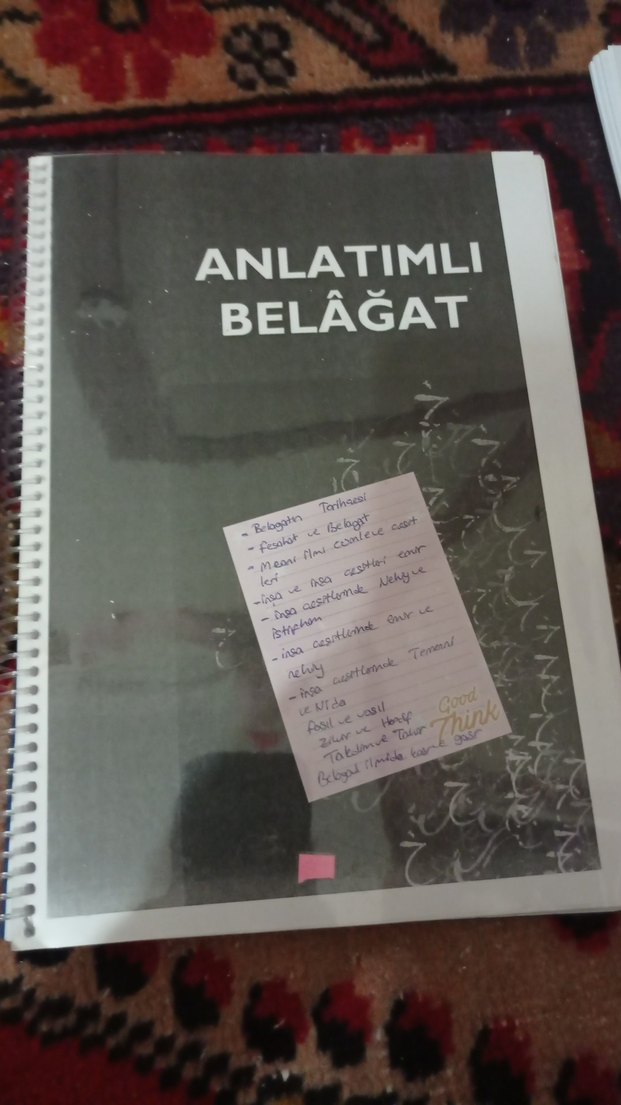 ANLATIMLI
BELÂĞAT
- Belagatın Tarihçesi
- Fesahat ve Belagat
- Meani ilmi cümle ve çeşit
leri
- inşa ve inşa çeşitleri emir
- inşa çeşitlerinde Nehiy ve
istifham
- inşa çeşitlerinde emir ve
nehiy
- inşa çeşitlerinde Temenni
ve Nida
fasıl ve vasıl
zikir ve Hazif
Takdim ve Tehir
Belagat ilminde kasr
Good
Think